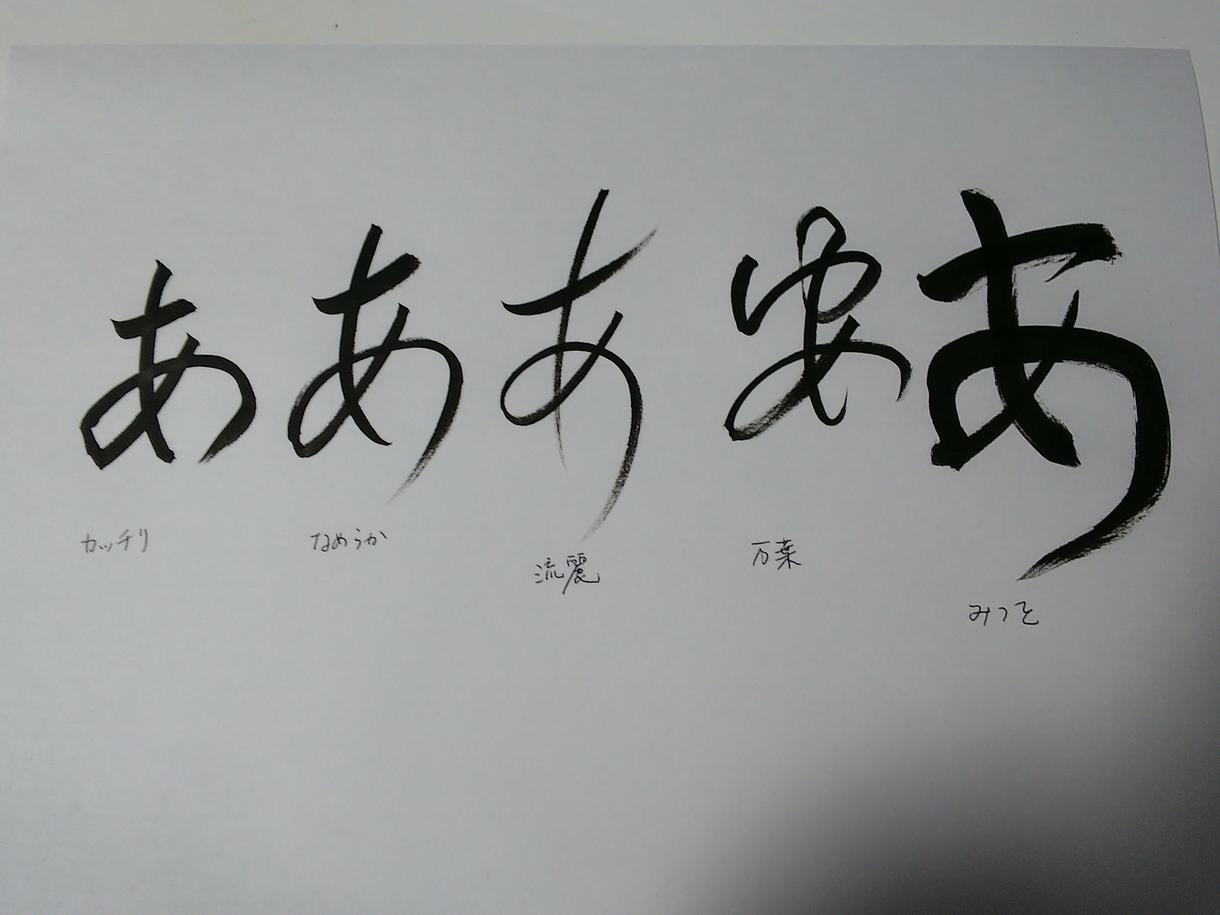 あ あ あ 安 あ
カッチリ なめらか 流麗 万葉 みつを